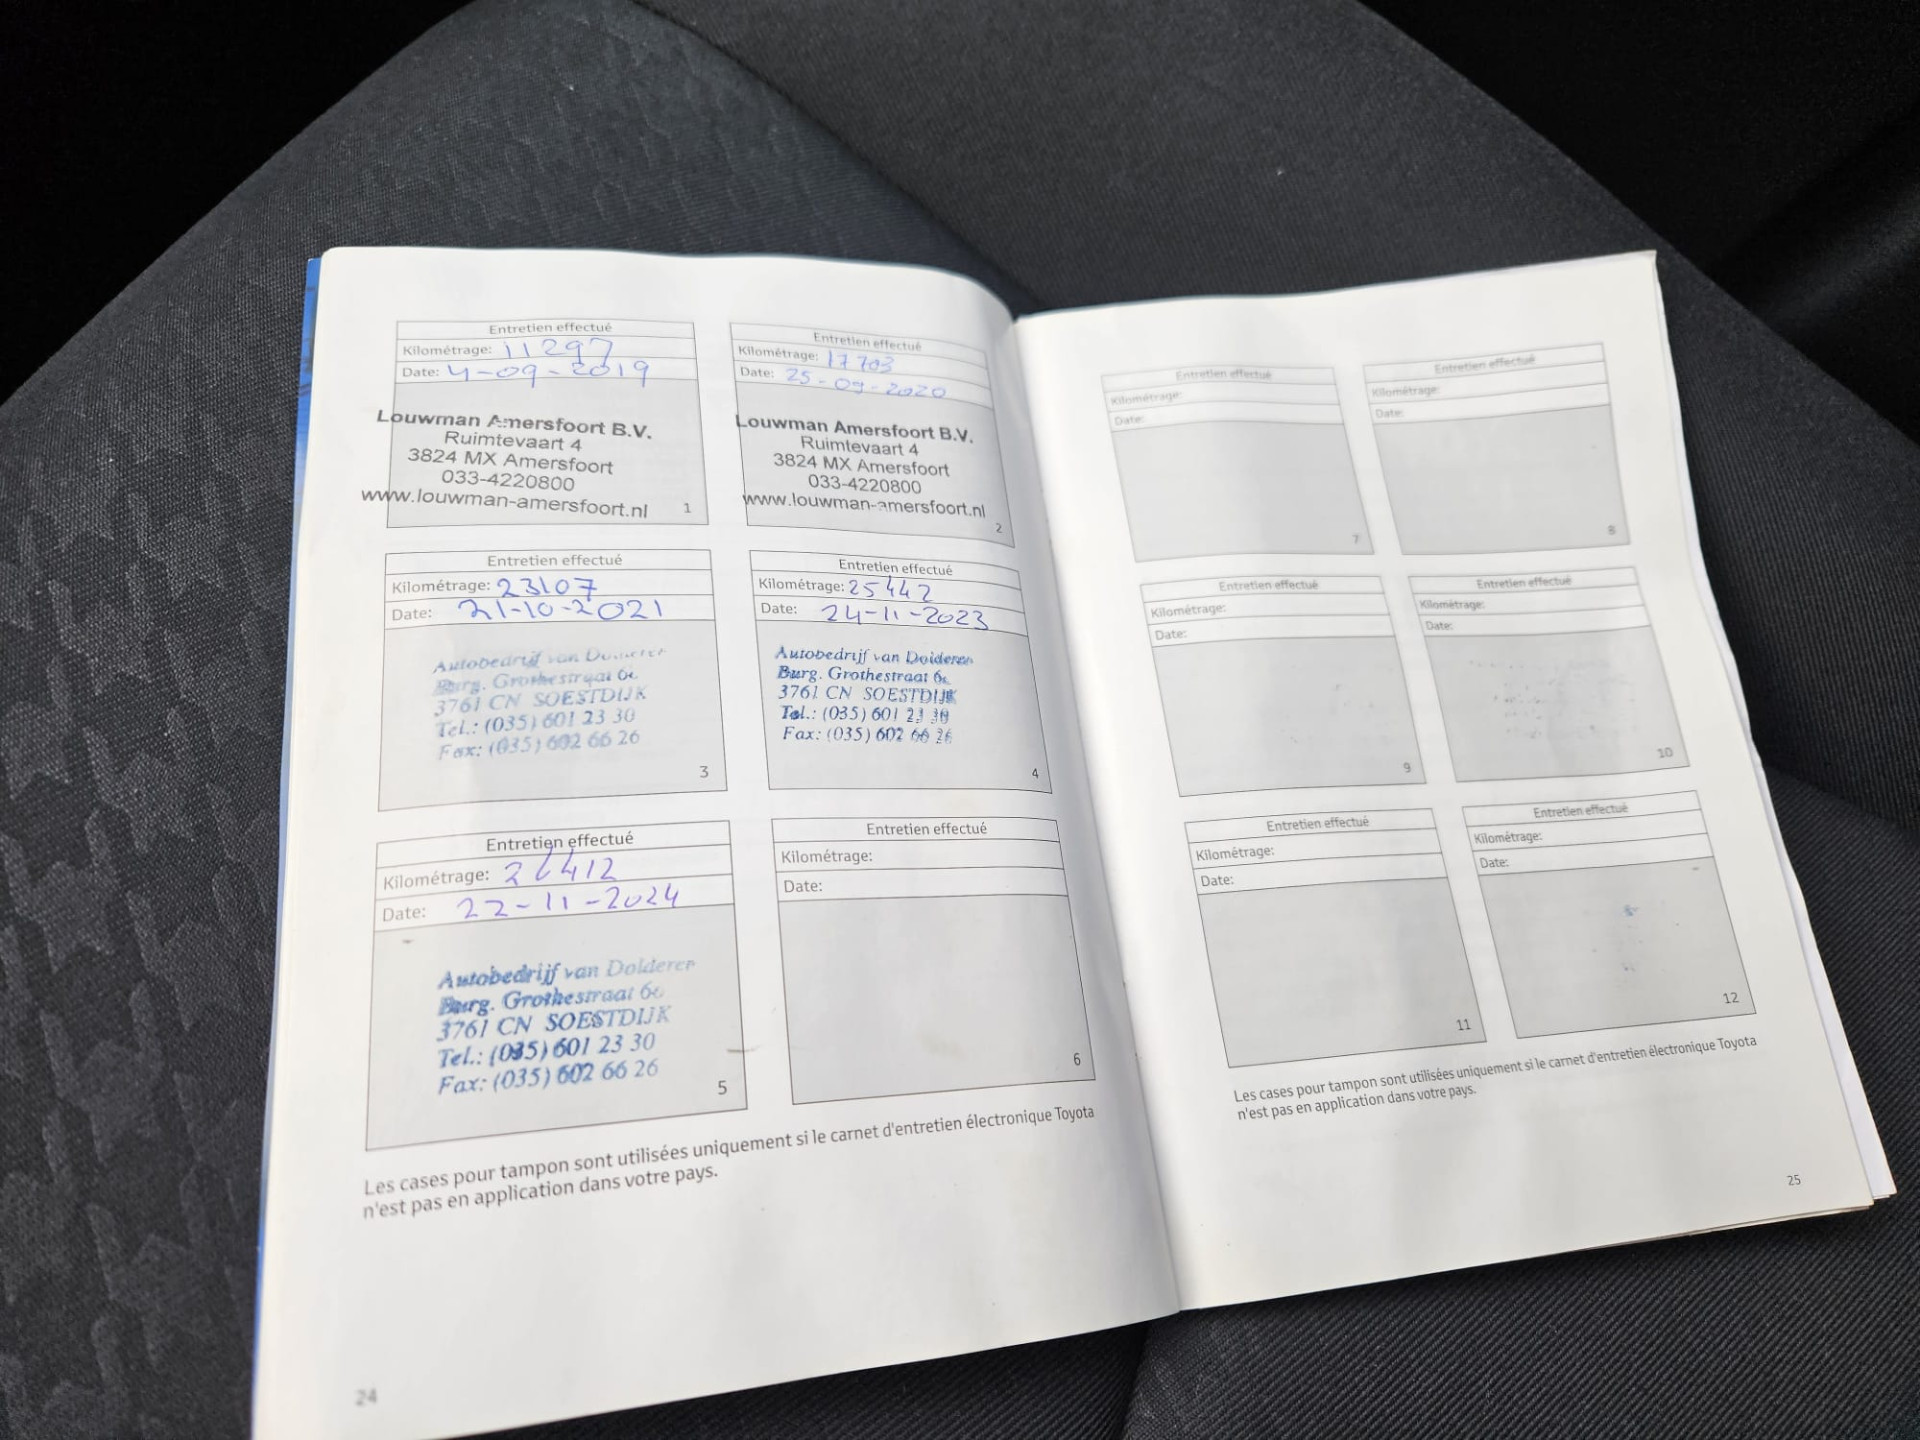 Entretien effectué
Kilométrage: 11297
Date: 4-09-2019
Louwman Amersfoort B.V.
Ruimtevaart 4
3824 MX Amersfoort
033-4220800
www.louwman-amersfoort.nl
1
Entretien effectué
Kilométrage: 17703
Date: 25-09-2020
Louwman Amersfoort B.V.
Ruimtevaart 4
3824 MX Amersfoort
033-4220800
www.louwman-amersfoort.nl
2
Entretien effectué
Kilométrage: 23107
Date: 21-10-2021
Autobedrijf van
Burg. Grothestraat
3761 CN SOESTDIJK
Tel.: (035) 601 23 30
Fax: (035) 602 66 26
3
Entretien effectué
Kilométrage: 25442
Date: 24-11-2023
Autobedrijf van Dolderen
Burg. Grothestraat
3761 CN SOESTDIJK
Tel.: (035) 601 23 30
Fax: (035) 602 66 26
4
Entretien effectué
Kilométrage:
Date: 22-11-2024
Autobedrijf van Dolderen
Burg. Grothestraat
3761 CN SOESTDIJK
Tel.: (035) 601 23 30
Fax: (035) 602 66 26
5
Entretien effectué
Kilométrage:
Date:
6
Les cases pour tampon sont utilisées uniquement si le carnet d'entretien électronique Toyota
n'est pas en application dans votre pays.
24
Entretien effectué
Kilométrage:
Date:
7
Entretien effectué
Kilométrage:
Date:
8
Entretien effectué
Kilométrage:
Date:
9
Entretien effectué
Kilométrage:
Date:
10
Entretien effectué
Kilométrage:
Date:
11
Entretien effectué
Kilométrage:
Date:
12
Les cases pour tampon sont utilisées uniquement si le carnet d'entretien électronique Toyota
n'est pas en application dans votre pays.
25